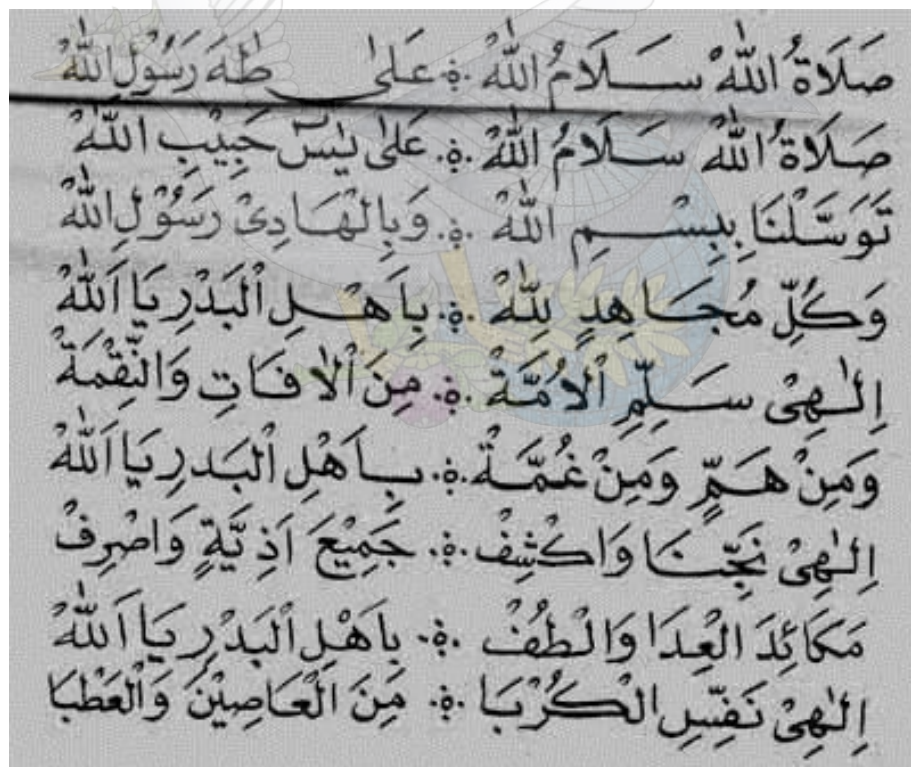 صَلَاةُ اللّٰهْ سَلَامُ اللّٰهْ ۞ عَلٰى طٰهَ رَسُوْلِ اللّٰهْ
صَلَاةُ اللّٰهْ سَلَامُ اللّٰهْ ۞ عَلٰى يٰسٓ حَبِيْبِ اللّٰهْ
تَوَسَّلْنَا بِبِسْمِ اللّٰهْ ۞ وَبِالْهَادِىْ رَسُوْلِ اللّٰهْ
وَكُلِّ مُجَاهِدٍ لِلّٰهْ ۞ بِاَهْلِ الْبَدْرِ يَا اَللّٰهْ
اِلٰهِىْ سَلِّمِ الْاُمَّةْ ۞ مِنَ الْاٰفَاتِ وَالنِّقْمَةْ
وَمِنْ هَمٍّ وَمِنْ غُمَّةْ ۞ بِاَهْلِ الْبَدرِ يَا اَللّٰهْ
اِلٰهِىْ نَجِّنَا وَاكْشِفْ ۞ جَمِيْعَ اَذِيَّةٍ وَاصْرِفْ
مَكَائِدَ الْعِدَا وَالْطُفْ ۞ بِاَهْلِ الْبَدْرِ يَا اَللّٰهْ
اِلٰهِىْ نَفِّسِ الْكُرَبَا ۞ مِنَ الْعَاصِيْنَ وَالْعَطْبَا